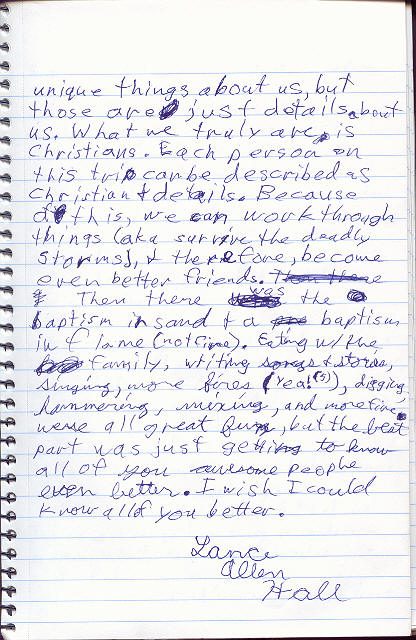 unique things about us, but
those are just details about
us. What we truly are, is
Christians. Each person on
this trip can be described as
Christian + details. Because
of this, we can work through
things (aka survive the deadly
storms), & therefore, become
even better friends.
Then there was the
baptism in sand & a baptism
in flame (not fine). Eating w/ the
family, writing songs & stories,
singing, more fires (yea!(s)), digging,
hammering, mixing, and more fire
were all great fun, but the best
part was just getting to know
all of you awesome people
even better. I wish I could
know all of you better.
Lance
Allen
Hall